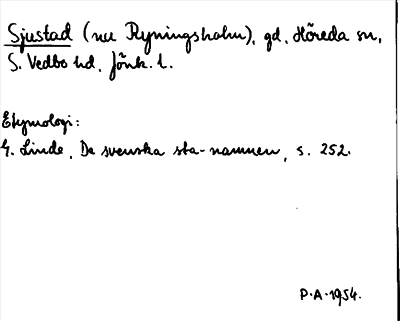 Sjustad (nu Ryningsholm), gd, Höreda sn,
S. Vedbo hd, Jönk. l.
Etymologi:
G. Linde, De svenska sta-namnen, s. 252.
P.A. 1954.